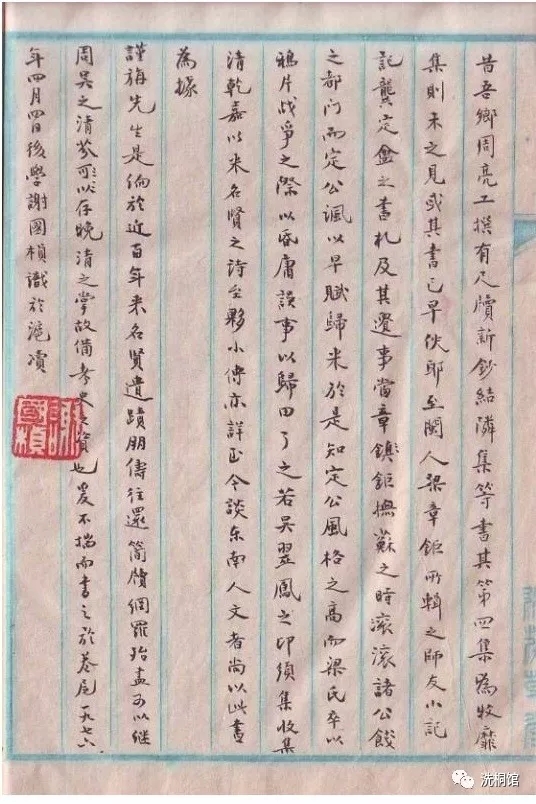 昔吾鄉周亮工撰有尺牘新鈔結隣集等書其第四集為牧靡
集則未之見或其書已早佚耶至閩人梁章鉅所輯之師友小記
記龔定盦之書札及其遺事當章鉅撫蘇之時滚滚諸公餞
之都门而定公諷以早賦歸来於是知定公風格之高而梁氏卒以
鴉片战爭之際以昏庸誤事以歸田了之若吴翌鳳之印須集收集
清乾嘉以来名賢之诗至夥小傳亦詳正今談东南人文者尚以此書
為據
謹旃先生是倘於近百年来名賢遺蹟朋儔往還简牘網羅殆盡可以继
周吴之清芬可以存晚清之掌故備考史之資也爰不揣而書之於卷尾一九七六
年四月四日後學謝國楨識於滬濱
謝國楨
洗桐馆